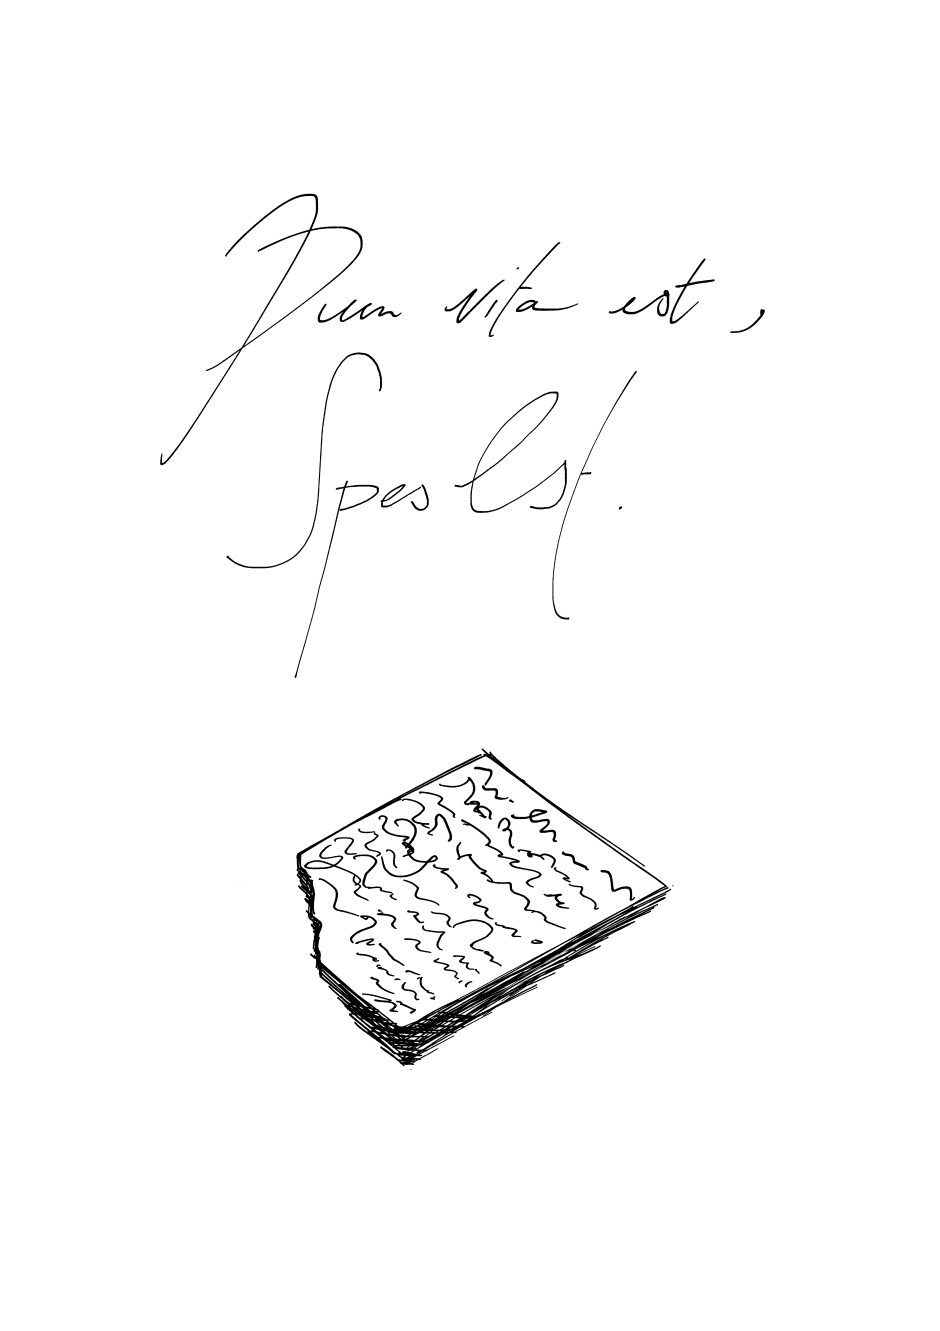 Dum vita est,
Spes Est.